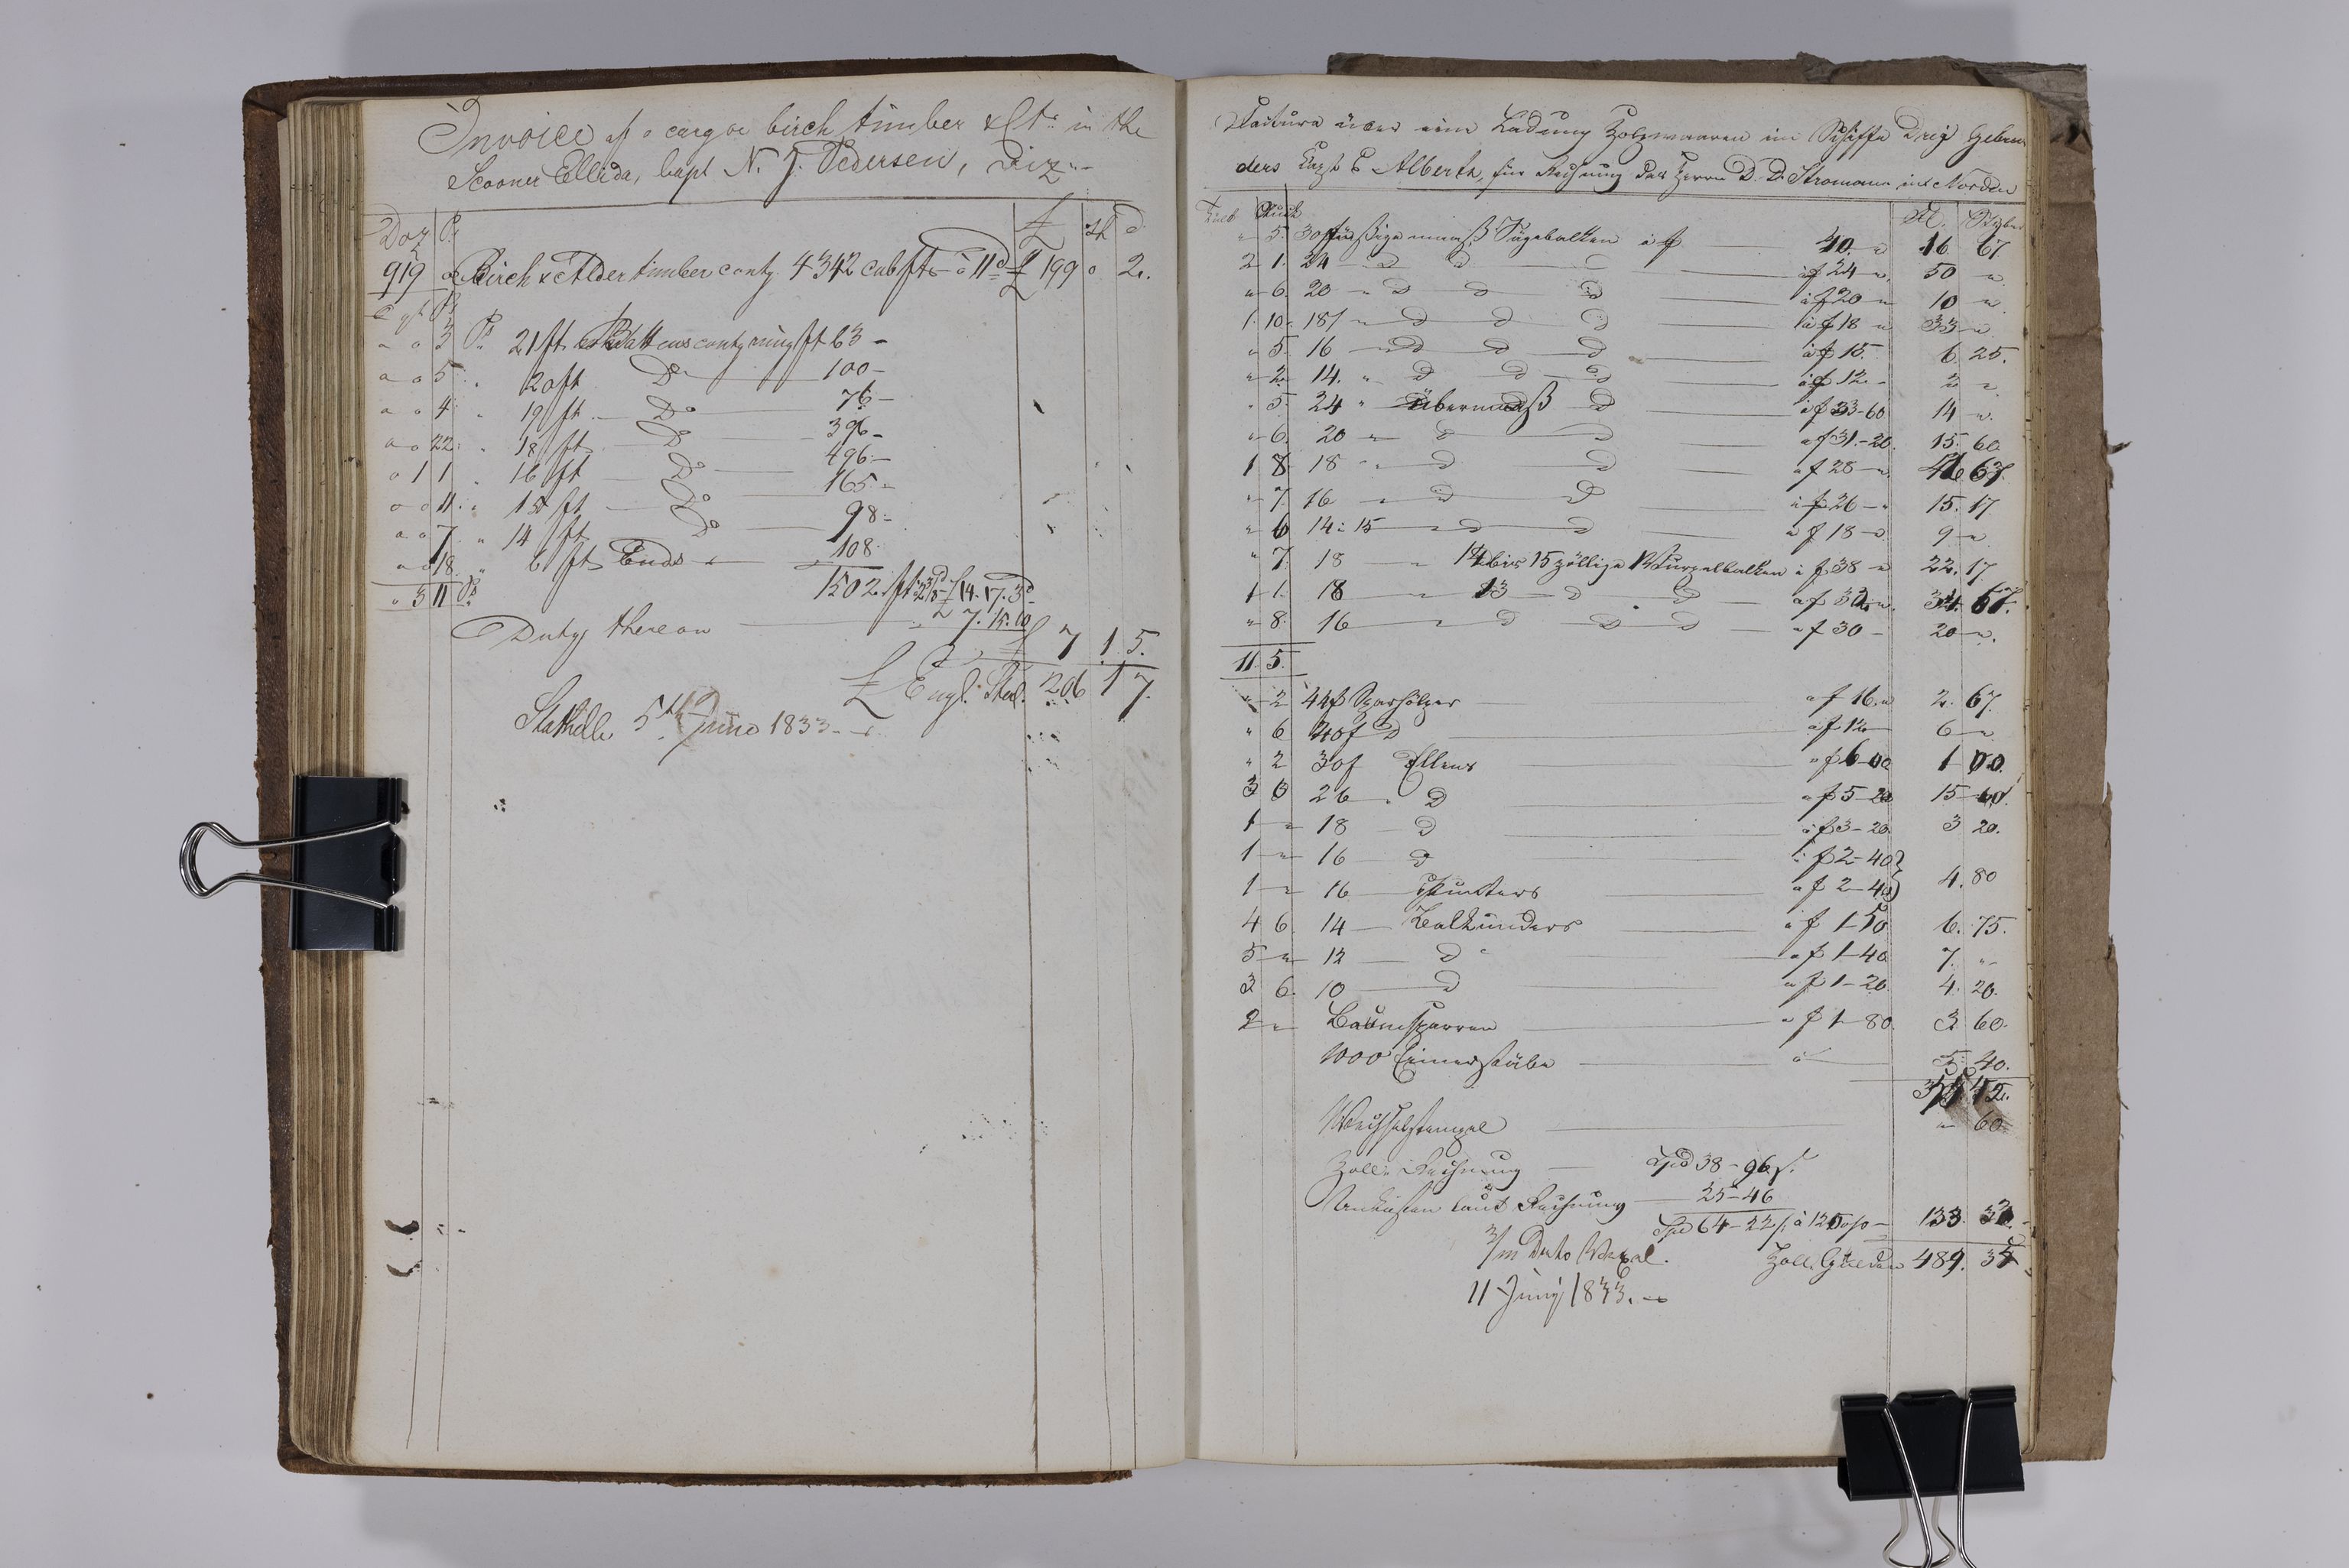 Invoice of a cargoe birch timber & Ctr in the
Scooner Ellida, Capt N. J. Pedersen, Viz
Doz P. £ sh d
919 Birch & Alder timber contg 4342 cub ft à 11d £ 199 2.
3 Ps 21 ft Battens contg runng ft 63 -
5 20 ft Do 100 -
4 19 ft Do 76 -
22 18 ft Do 396 -
1 1 16 ft Do 496 -
11 15 ft Do 165 -
7 14 ft Do 98 -
18 6 ft Ends 108
3 11 Ps 1502 ft £ 14. 17. 3d
Duty thereon £ 7. 15. 10
£ 7 1 5.
£ Engl. Sterl. 206 1 7.
Stathelle 5th Juno 1833.
Factura über eine Ladung Holzwaaren im Schiffe Drei Gebrü
ders Capt Alberts, für Rechnung des Herrn D. D. Stromann in Norden
Stück
5. 30 füssige Sägebalken à f 40. 16 67
2 1. 24 D D D à f 24 50
6. 20 D D D à f 20 10
1. 10. 18 D D D à f 18 33
5. 16 D D D à f 15. 6. 25.
2. 14. D D D à f 12 2
5. 24 übermaß D à f 33-60 14
6. 20 D D à f 31-20. 15. 60
1 8 18 D D à f 28 46 67.
7. 16 D D à f 26 15. 17
6 14 à 15 D D à f 18 9
7. 18 14 bis 15 zöllige Wurzelbalken à f 38 22. 17.
1 1. 18 13 D D à f 32. 34. 67.
8. 16 D D D à f 30 20
11 5.
2 44f Sparhölzer à f 16. 2. 67.
6 40f D à f 12 6
2 30f Ellens à f 6-00 1 00.
3 0 26 D à f 5-20 15 60.
1 18 D à f 3-20. 3 20.
1 16 D à f 2-40
1 16 à f 2-40 4. 80
4 6. 14 Kalkunders à f 1-50 6. 75.
5 12 D à f 1-40. 7.
3 6. 10 D à f 1-20. 4. 20.
2 Baumsparren à f 1-80. 3 60.
1000 Eimerstäbe 5. 40.
Wechselstempel 60
Zoll Rechnung Spd 38-96 s.
Unkosten laut Rechnung 25-46
Spd 64-22 s. à 133.
3/m Dato Wexel. Holl. Gulden 489.
11 Juny 1833.